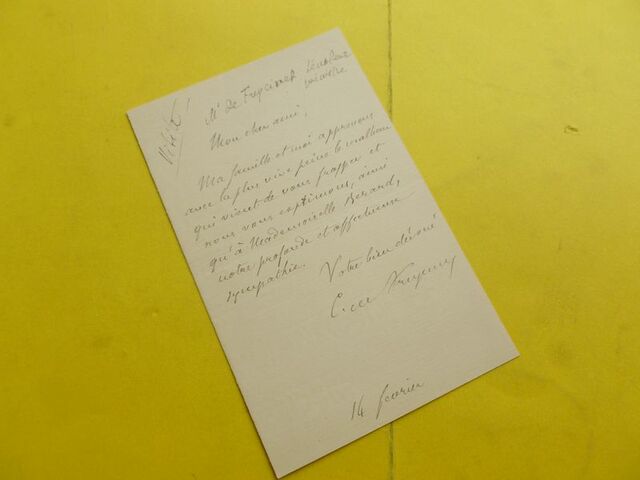 Mr de Freycinet Sénateur
ministre
Mon cher ami,
Ma famille et moi apprenons
avec la plus vive peine le malheur
qui vient de vous frapper et
nous vous exprimons, ainsi
qu'à Mademoiselle Berard,
notre profonde et affectueuse
sympathie.
Votre bien dévoué
C. de Freycinet
14 février